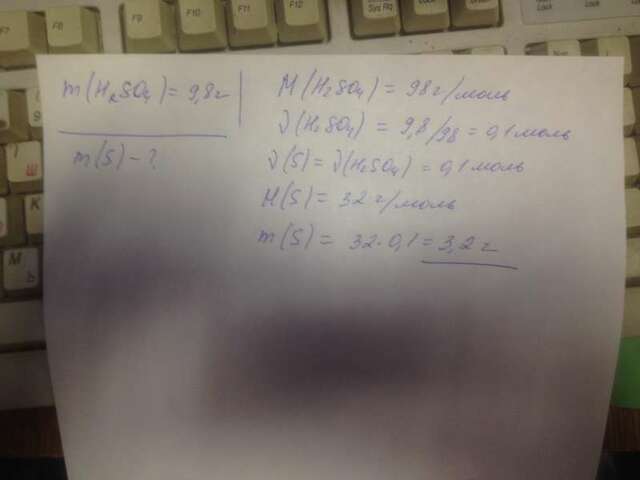 F7
F8
F9
F10
F11
F12
Lock
m(H₂SO₄) = 9,8г
m(S) - ?
M(H₂SO₄) = 98 г/моль
ν(H₂SO₄) = 9,8/98 = 0,1 моль
ν(S) = ν(H₂SO₄) = 0,1 моль
M(S) = 32 г/моль
m(S) = 32·0,1 = 3,2 г
Ш
K
M
Ь